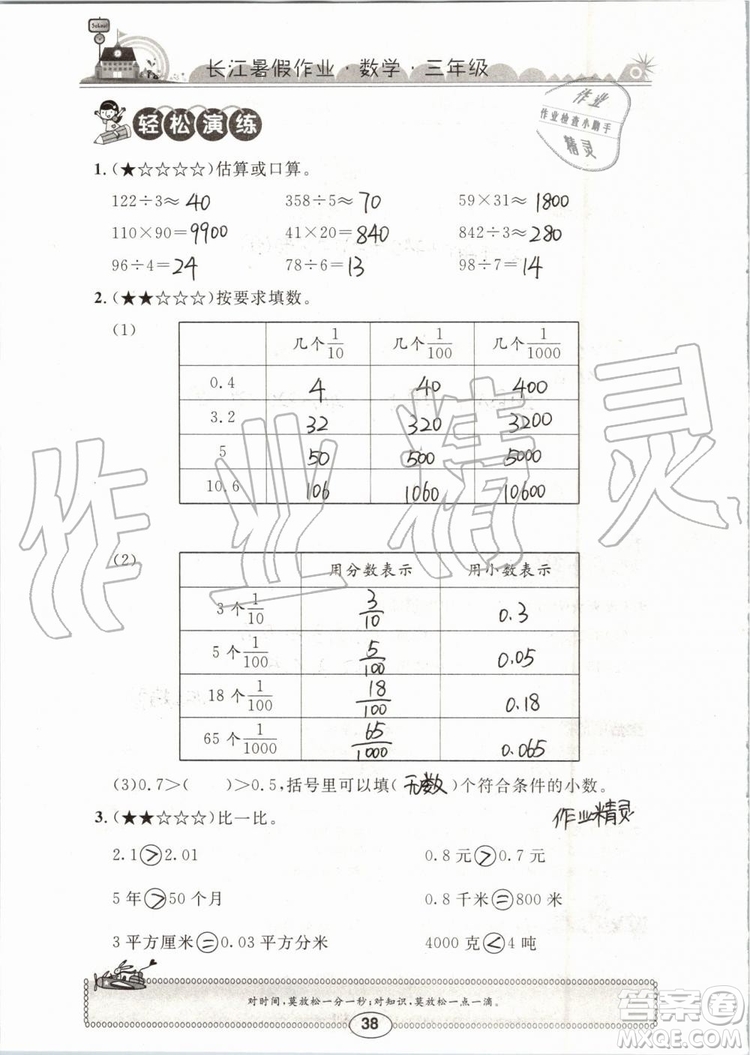 School
长江暑假作业·数学·三年级
轻松演练
作业
作业检查小助手
精灵
1.(★☆☆☆☆)估算或口算。
122÷3≈40 358÷5≈70 59×31≈1800
110×90=9900 41×20=840 842÷3≈280
96÷4=24 78÷6=13 98÷7=14
2.(★★☆☆☆)按要求填数。
(1)
几个1/10 几个1/100 几个1/1000
0.4 4 40 400
3.2 32 320 3200
5 50 500 5000
10.6 106 1060 10600
作业精灵
(2)
用分数表示 用小数表示
3个1/10 3/10 0.3
5个1/100 5/100 0.05
18个1/100 18/100 0.18
65个1/1000 65/1000 0.065
(3)0.7＞( )＞0.5,括号里可以填(无数)个符合条件的小数。
3.(★★☆☆☆)比一比。
作业精灵
2.1＞2.01 0.8元＞0.7元
5年＞50个月 0.8千米=800米
3平方厘米=0.03平方分米 4000克＜4吨
对时间,莫放松一分一秒;对知识,莫放松一点一滴。
38
答案圈
MXQE.COM